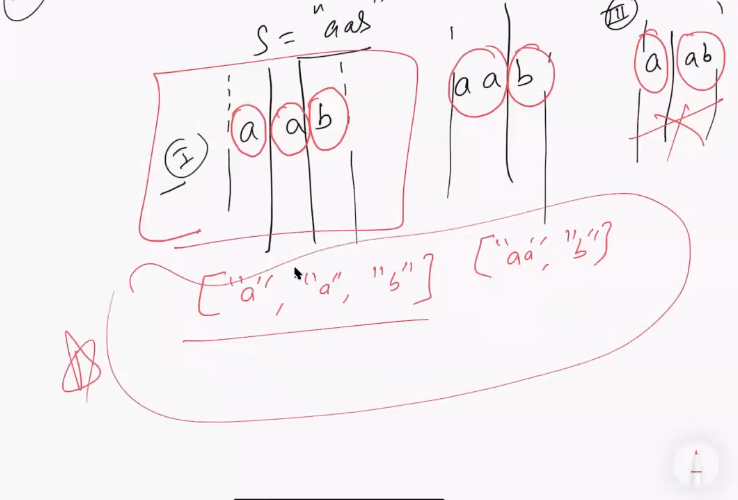 S = "aab"
III
a ab
a a b
I
a a b
["a", "a", "b"]
["aa", "b"]